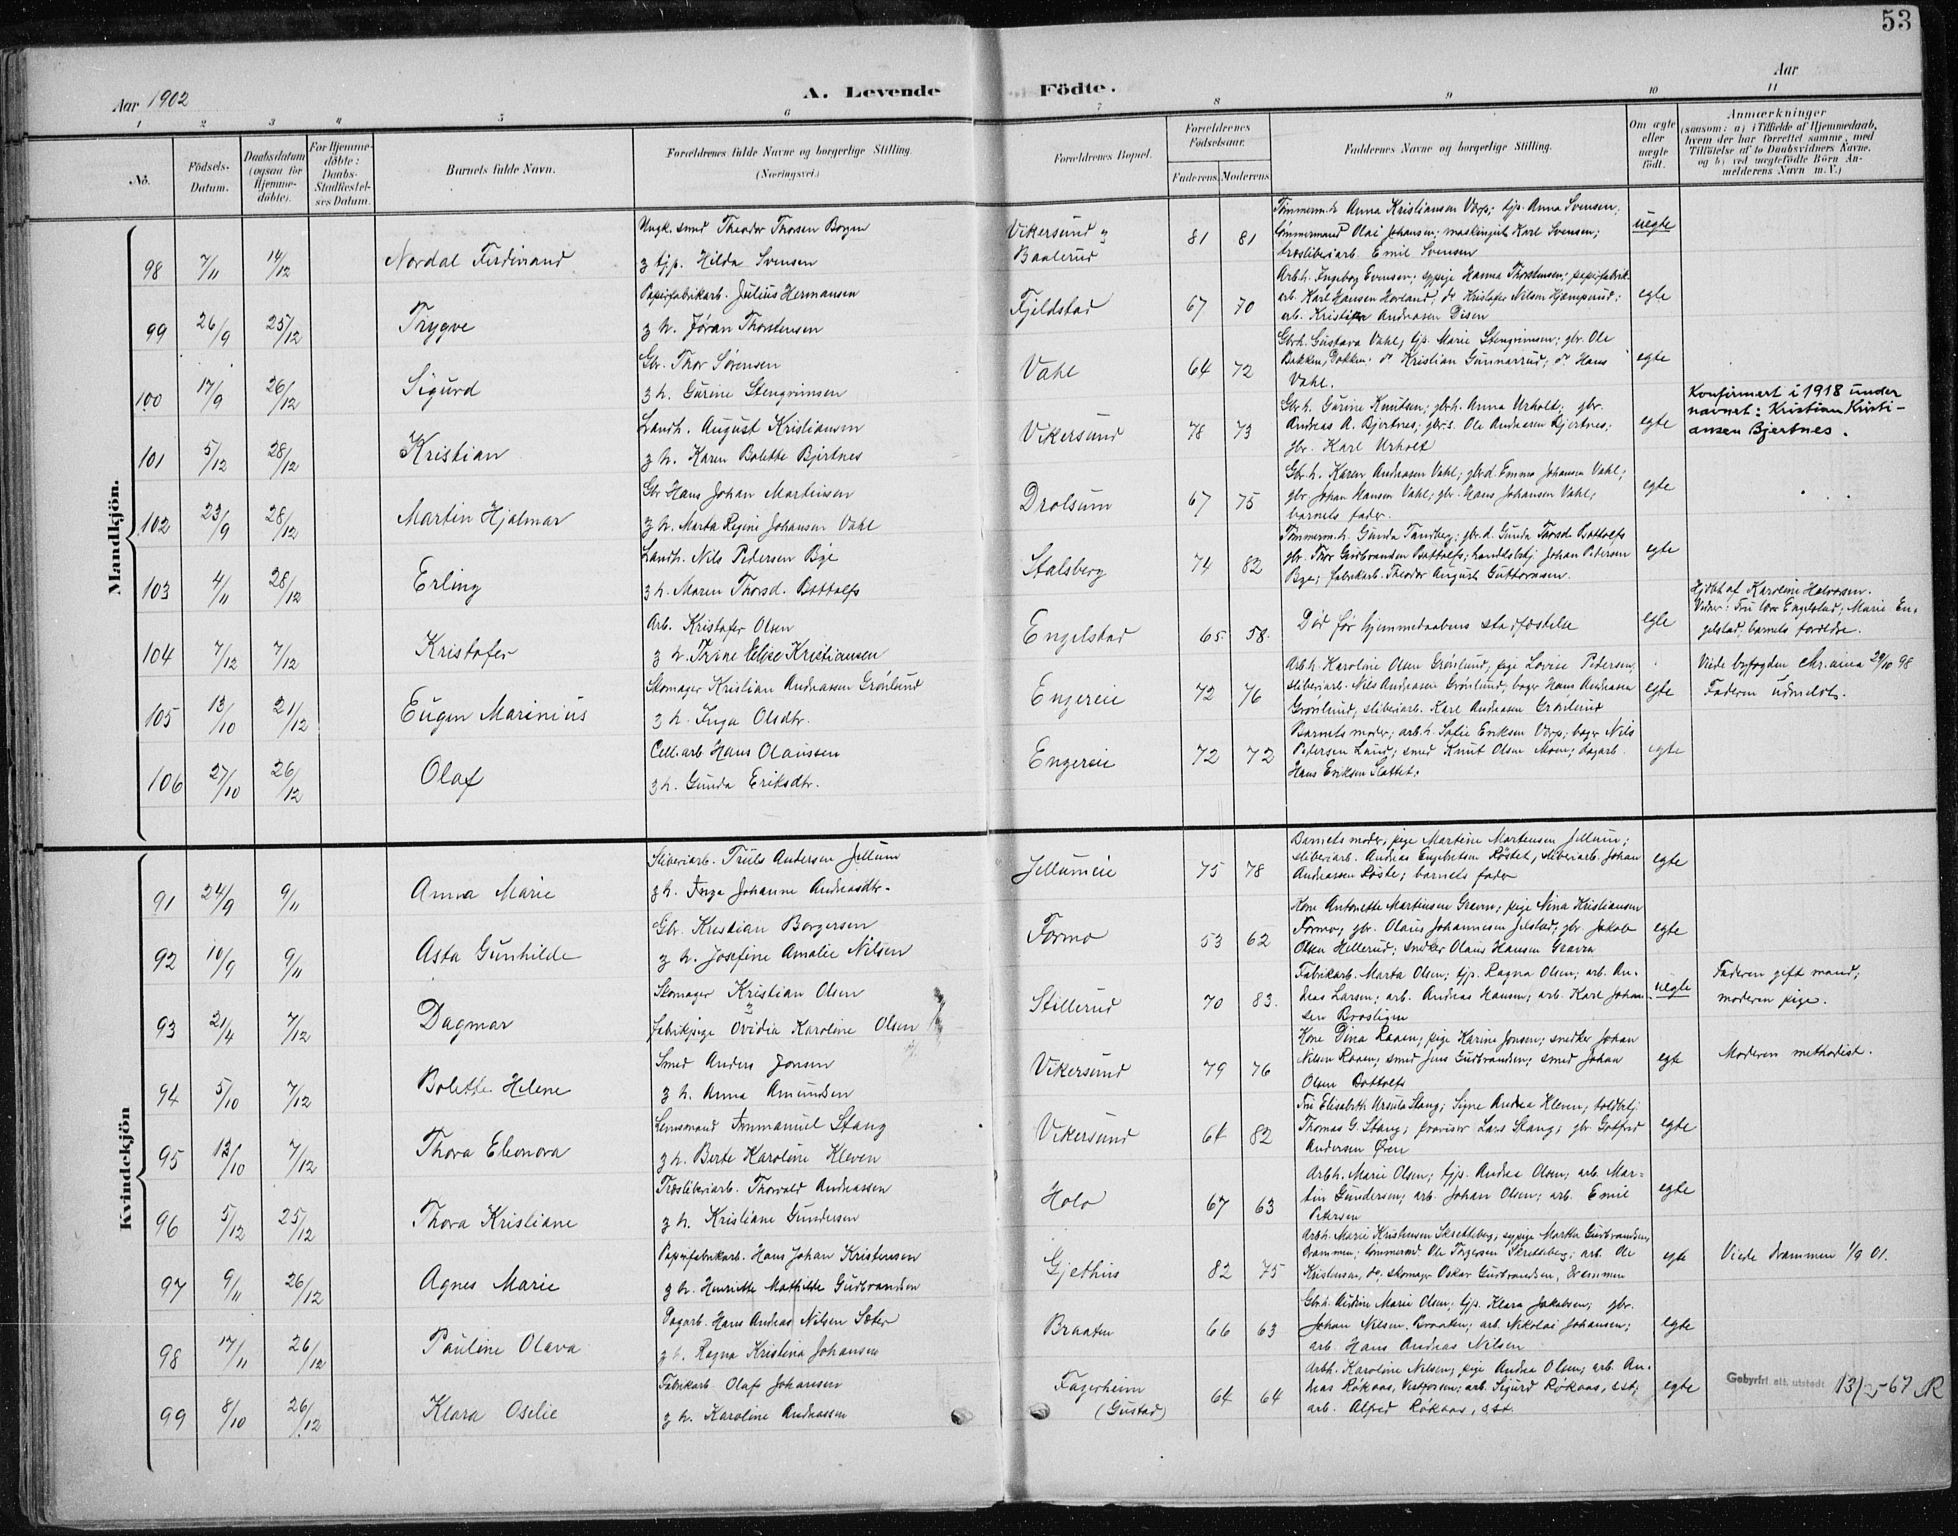 53
Aar 1902
A. Levende
Födte.
Aar
1 2 3 4 5 6 7 8 9 10 11
No.
Födsels-Datum.
Daabsdatum (ogsaa for Hjemmedøbte).
For Hjemmedøbte: Daabs-Stadfæstelses Datum.
Barnets fulde Navn.
Forældrenes fulde Navne og borgerlige Stilling.
(Næringsvei.)
Forældrenes Bopæl.
Forældrenes Fødselsaar.
Faderens. Moderens.
Faddernes Navne og borgerlige Stilling.
Om ægte eller uægte födt.
Anmærkninger
(saasom: a) i Tilfælde af Hjemmedaab,
hvem der har forrettet samme, med
Tilföielse af to Daabsvidners Navne,
og b) ved uægtefödte Börn An-
melderens Navn m. V.)
Mandkjön.
98 7/11 14/12 Nordal Ferdinand
Ungk. smed Theodor Thorsen Borgen
og tjp. Hilda Svensen
Vikersund og
Baalerud
81 81
Tømmerm.h. Anna Kristiansen Vorp; tjp. Anna Svensen;
tømmermand Olai Johansen; maskingut Karl Svensen;
træsliberiarb. Emil Svensen
uegte
99 26/9 25/12 Trygve
Papirfabrikarb. Julius Hermansen
og h. Jøran Thorstensen
Fjeldstad
67 70
Arb.h. Ingeborg Evensen; sypige Hanna Thorstensen; papirfabrik-
arb. Karl Hansen Hovland; do Kristofer Nilsen Kjæmperud;
arb. Kristian Andreasen Disen
egte
100 17/9 26/12 Sigurd
Gbr. Thor Sørensen
og h. Gurine Stengrimsen
Vahl
64 72
Gbrh. Gustava Vahl; tjp. Marie Stengrimsen; gbr. Ole
Bakken, Dokken; do Kristian Gunnarrud; do Hans
Vahl.
egte
101 5/12 28/12 Kristian
Landh. August Kristiansen
og h. Karen Bolette Bjertnes
Vikersund
78 73
Gbr h. Gurine Knutsen; gbrh. Anna Urholt; gbr.
Andreas A. Bjertnes; gbr.s. Ole Andreasen Bjertnes;
gbr. Karl Urholt
egte
Konfirmert i 1918 under
navnet: Kristian Kristi-
ansen Bjertnes.
102 23/9 28/12 Martin Hjalmar
Gbr Hans Johan Martinsen
og h. Marta Regine Johansen Vahl
Drolsum
67 75
Gbr. h. Karen Andreasen Vahl; gbr.d. Emma Johansen Vahl;
gbr. Johan Hansen Vahl; gbr. Hans Johansen Vahl;
barnets fader.
egte
103 4/11 28/12 Erling
Landh. Nils Pedersen Bye
og h. Maren Thorsd. Bottolfs
Stalsberg
74 82
Tømmerm.h. Gunda Tandberg; gbr.d. Gunda Thorsd. Bottolfs
gbr. Thor Gudbrandsen Bottolfs; Landhbtj. Johan Petersen
Bye; fabrikarb. Theodor August Guttormsen.
egte
104 7/12 7/12 Kristofer
Arb. Kristofer Olsen
og h. Trine Elise Kristiansen
Engelstad
65 58.
Død før hjemmedaabens stadfæstelse
egte
Hjdbt af Karoline Halvorsen.
Vidner: Fru Engelstad; Marie En-
gelstad; barnets forældre.
105 13/10 21/12 Eugen Marinius
Skomager Kristian Andreassen Grønlund
og h. Inga Olsdtr.
Engereie
72 76
Arb.h. Karoline Olsen Grønlund; pige Lovise Pedersen;
sliberiarb. Nils Andreasen Grønlund; bager Hans Andreasen
Grønlund; sliberiarb. Karl Andreasen Grønlund
egte
Viede byfogden 29/10 98
Faderen udmeldt.
106 27/10 26/12 Olaf
Cell.arb Hans Olaussen
og h. Gunda Eriksdtr.
Engereie
72 72
Barnets moder; arb.h. Sofie Eriksen Vorp; bager Nils
Petersen Lund; smed Knut Olsen Moen; dagarb.
Hans Eriksen Slattet.
egte
Kvindekjön
91 24/9 9/11 Anna Marie
Sliberiarb. Truls Andersen Jellum
og h. Inga Johanne Andreasdtr.
Jellumeie
75 78
Barnets moder; pige Martine Martensen Jellum;
sliberiarb. Andreas Engebretsen Røstet; sliberiarb. Johan
Andreassen Røste; barnets fader
egte
92 10/9 9/11 Asta Gunhilde
Gbr. Kristian Borgersen
og h. Josefine Amalie Nilsen
Formo
53 62
Kone Antonette Martinsen Graven; pige Nina Kristiansen
Formo; gbr. Olaus Johannesen Jelstad; gbr. Jakob
Olsen Hellerud; snedker Olaus Hansen Graven
egte
93 21/4 7/12 Dagmar
Skomager Kristian Olsen
og
fabrikpige Ovidia Karoline Olsen
Stillerud
70 83.
Fabrikarb. Marta Olsen; tjp. Ragna Olsen; arb. An-
dreas Larsen; arb. Andreas Hansen; arb. Karl Johan-
sen Brosligen
uegte
Faderen gift mand;
moderen pige.
94 5/10 7/12 Bolette Helene
Smed Anders Jonsen
og h. Anna Amundsen
Vikersund
79 76
Kone Dina Raaen; pige Karine Jonsen; snedker Johan
Nilsen Raaen; smed Jens Gudbrandsen; smed Johan
Olsen Bottolfs
egte
Moderen methodist.
95 12/10 7/12 Thora Eleonora
Lensmand Immanuel Stang
og h. Berte Karoline Kleven
Vikersund
61 82
Fru Elisabeth Ursula Stang; Signe Andrea Kleven; toldbetj.
Thomas G. Stang; provisor Lars Stang; gbr. Gotfred
Andersen Øren
egte
96 5/12 25/12 Thora Kristiane
Træsliberiarb. Thorvald Andreassen
og h. Kristiane Gundersen
Holo
67 63
Arbh. Marie Olsen; tjp. Andrea Olsen; arb. Mar-
tin Gundersen; arb. Johan Olsen; arb. Emil
Petersen
egte
97 9/11 26/12 Agnes Marie
Papirfabrikarb. Hans Johan Kristensen
og h. Henriette Mathilde Gudbrandsen
Gjethus
82 75
Arbh. Marie Kristensen Skretteberg; sypige Martha Gudbrandsen,
Drammen; tømmermd Ole Torgersen Skretteberg; arb. Ole
Kristensen, do; skomager Oskar Gudbrandsen, Drammen
egte
Viede Drammen 1/9 01.
98 17/11 26/12 Pauline Olava
Dagarb. Hans Andreas Nilsen Sæter
og h. Ragna Kristina Johansen
Braaten
66 63
Gbrh. Andrine Marie Olsen; tjp. Klara Jakobsen; gbr.
Johan Nilsen Braaten; arb. Nikolai Johansen;
arb. Hans Andreas Nilsen
egte
99 8/10 26/12 Klara Oselie
Fabrikarb. Olaf Johansen
og h. Karoline Andreassen
Fagerheim
(Gustad)
64 64
Arbh. Karoline Nilsen; pige Andrea Olsen; arb. An-
dreas Røkaas, Vestfossen; arb. Sigurd Røkaas, sst;
arb. Alfred Røkaas, sst.
egte
Gebyrfri att. utstedt 13/2-67 AR